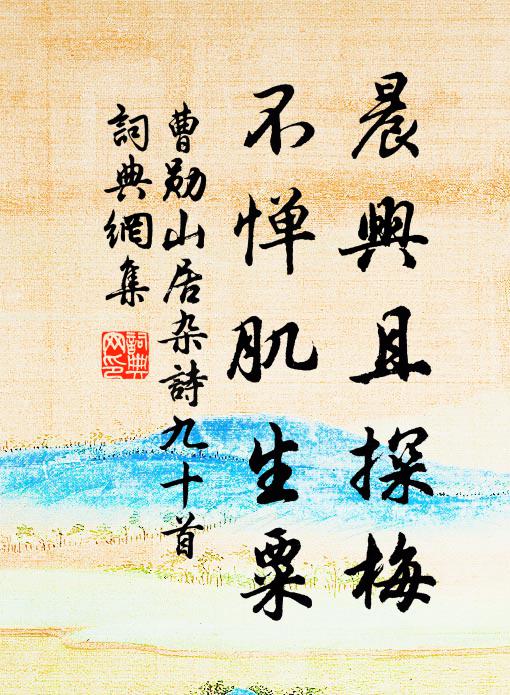 晨興且探梅
不惮肌生粟
曹勋山居杂詩九十首
詞典網集
詞典
网印